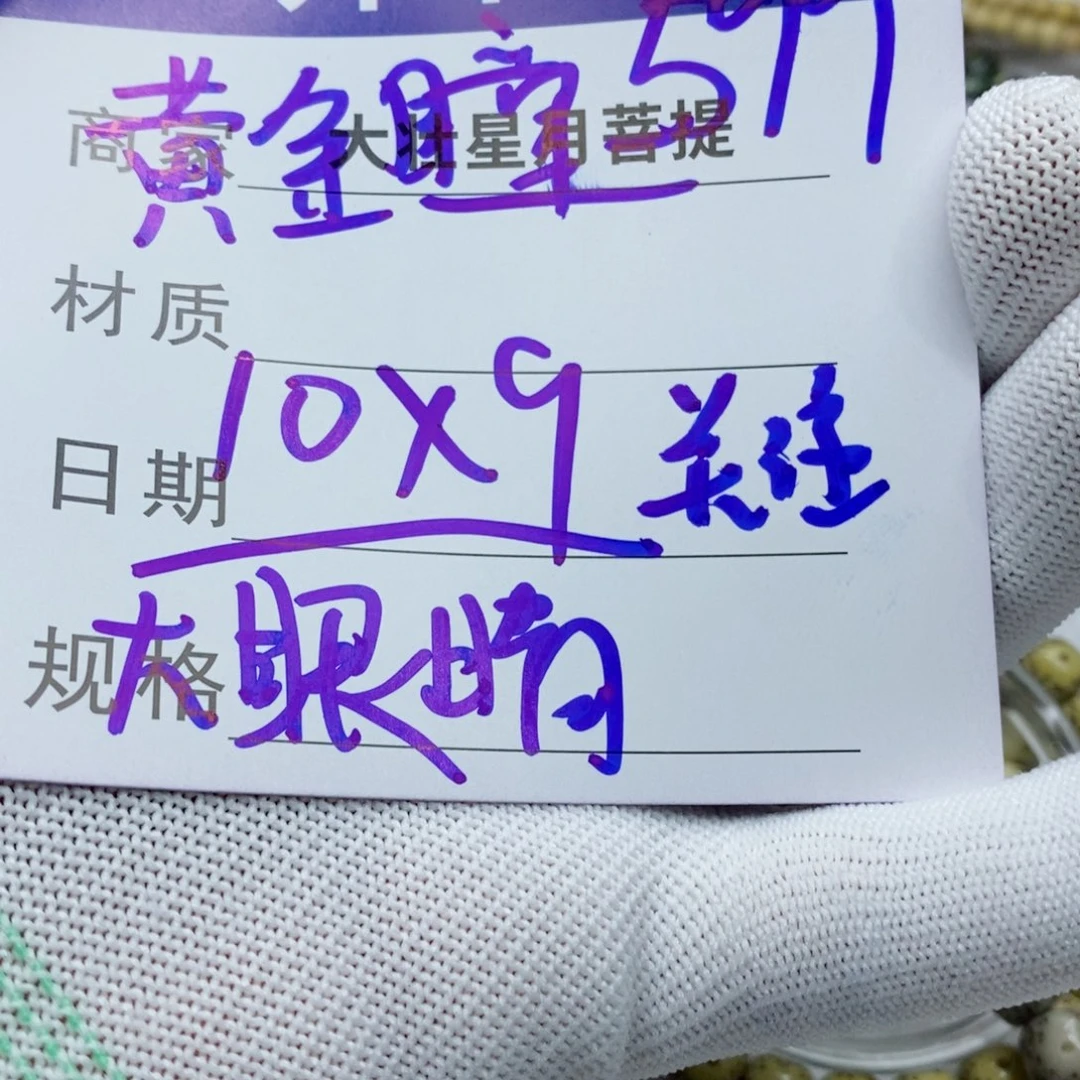 黄金瞳599
商家 大壮星月菩提
材质
10X9 关注
日期
大眼睛
规格